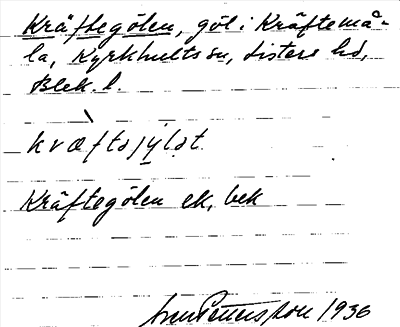 Kräftegölen, göl i Kräftemå-
la, Kyrkhults sn, Listers hd,
Blek. l.
kvæ̀ftəjylət.
Kräftegölen ek, bek
1936